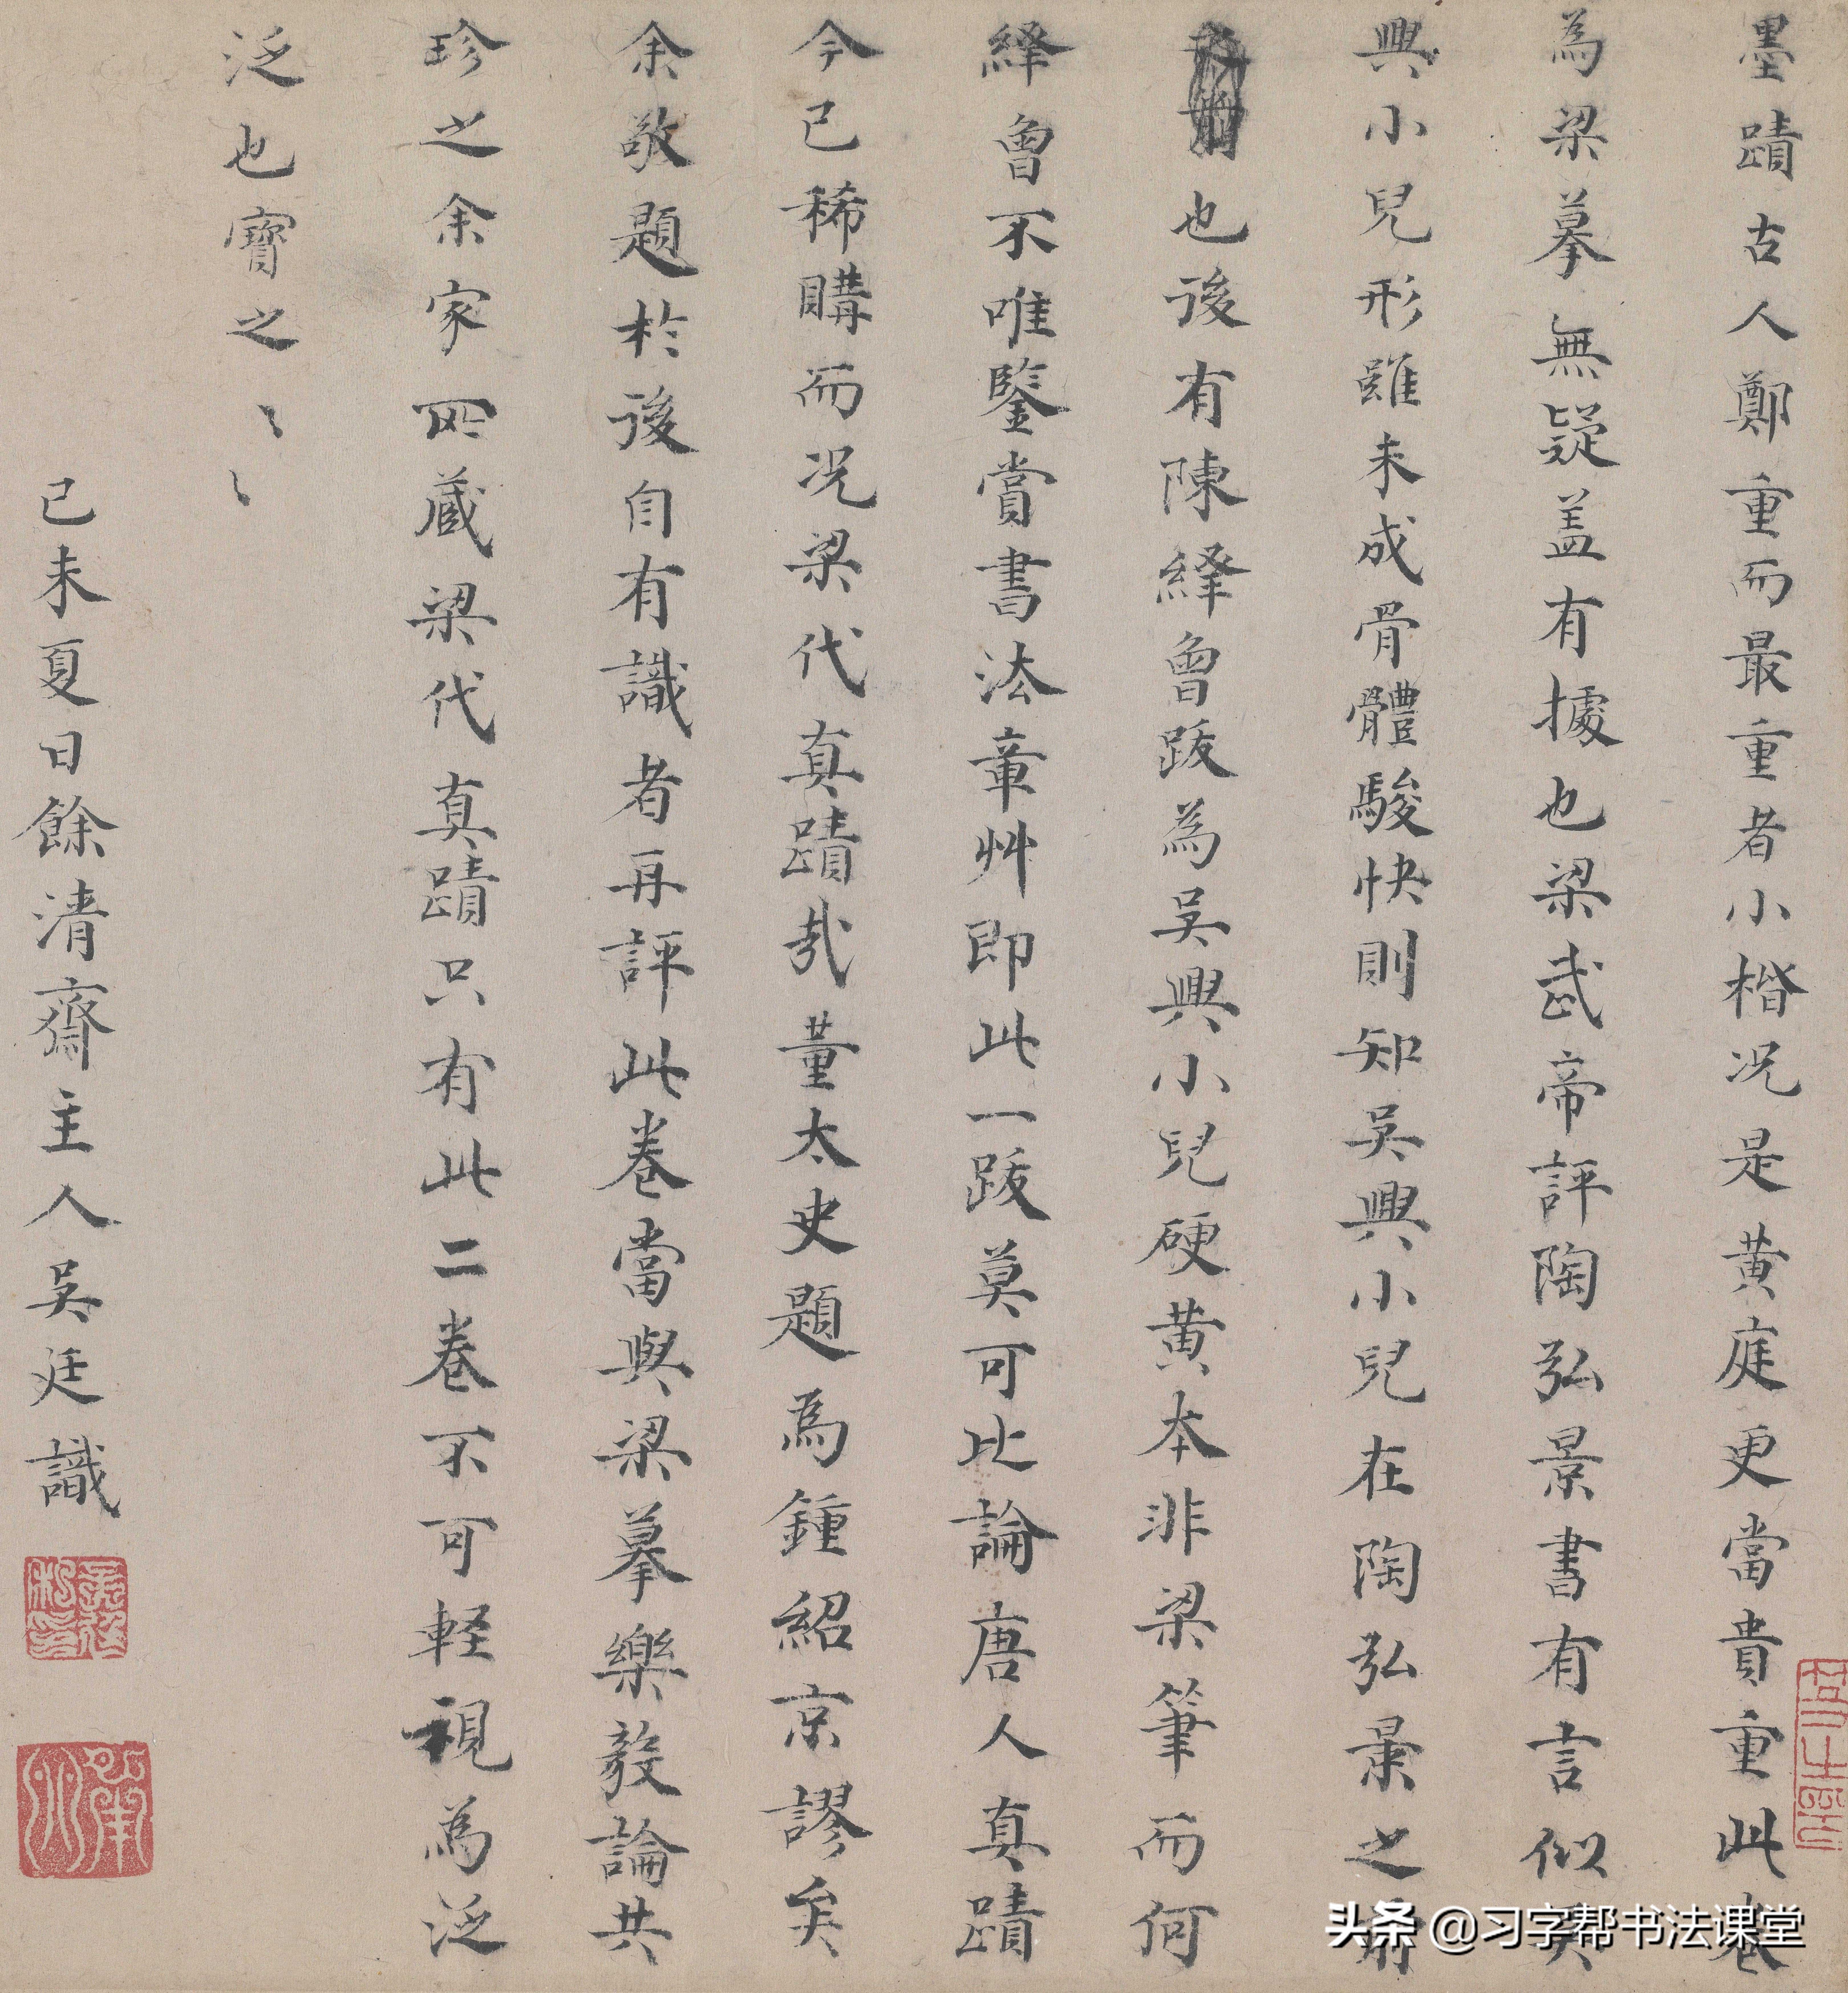 墨蹟古人鄭重而最重者小楷況是黄庭更當貴重此卷
為梁摹無疑盖有據也梁武帝評陶弘景書有言似吴
興小兒形雖未成骨體駿快則知吴興小兒在陶弘景之前
也後有陳繹曾跋為吴興小兒硬黄本非梁筆而何
繹曾不唯鑒賞書法章艸即此一跋莫可比論唐人真蹟
今已稀購而況梁代真蹟㢤董太史題為鍾紹京謬矣
余敬題於後自有識者再評此卷當與梁摹樂毅論共
珍之余家所藏梁代真蹟只有此二卷不可輕視為泛
泛也寶之〻〻
己未夏日餘清齋主人吴廷識
头条 @习字帮书法课堂